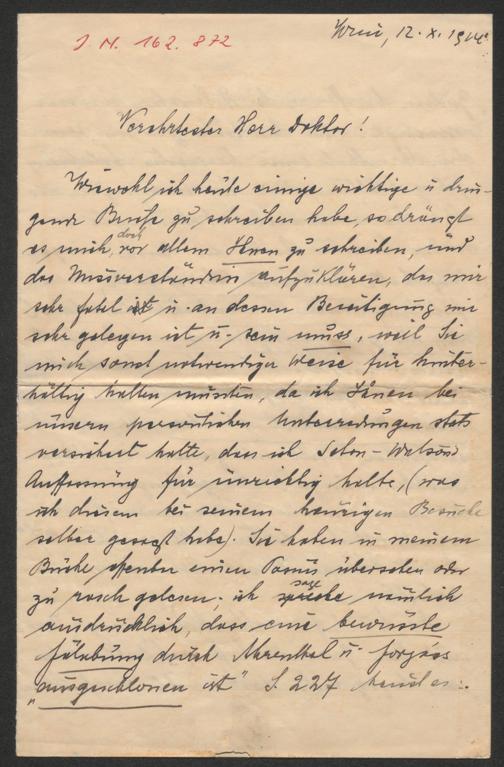 J. N. 162.872
Wien, 12. X. 1914.
Verehrtester Herr Doktor!
Wiewohl ich heute einige wichtige u drin-
gende Briefe zu schreiben habe, so drängt
es mich doch, vor allem Ihnen zu schreiben, und
das Missverständnis aufzuklären, das mir
sehr fatal ist u. an dessen Beseitigung mir
sehr gelegen ist u. sein muss, weil Sie
mich sonst notwendiger Weise für hinter-
hältig halten müssten, da ich Ihnen bei
unsern persönlichen Unterredungen stets
versichert hatte, dass ich Seton-Watsons
Auffassung für unrichtig halte, (was
ich diesem bei seinem heurigen Besuche
selber gesagt habe). Sie haben in meinem
Buche offenbar einen Passus übersehen oder
zu rasch gelesen; ich sage nämlich
ausdrücklich, dass eine bewusste
Fälschung durch Ährenthal u. Forgács
"ausgeschlossen ist" S. 227 heisst es: